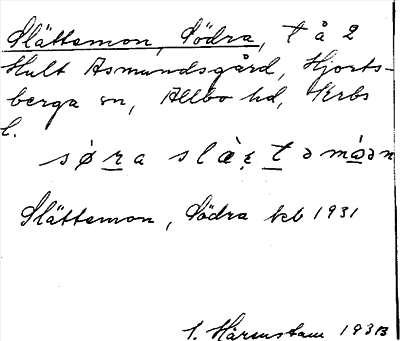 Slättamon, Södra, t å 2
Hult Asmundsgård, Hjorts-
berga sn, Allbo hd, Krbs
l.
sø̀ra slæ̀təmò̩ən
Slättamon, Södra keb 1931
S. Hårenstam 1933